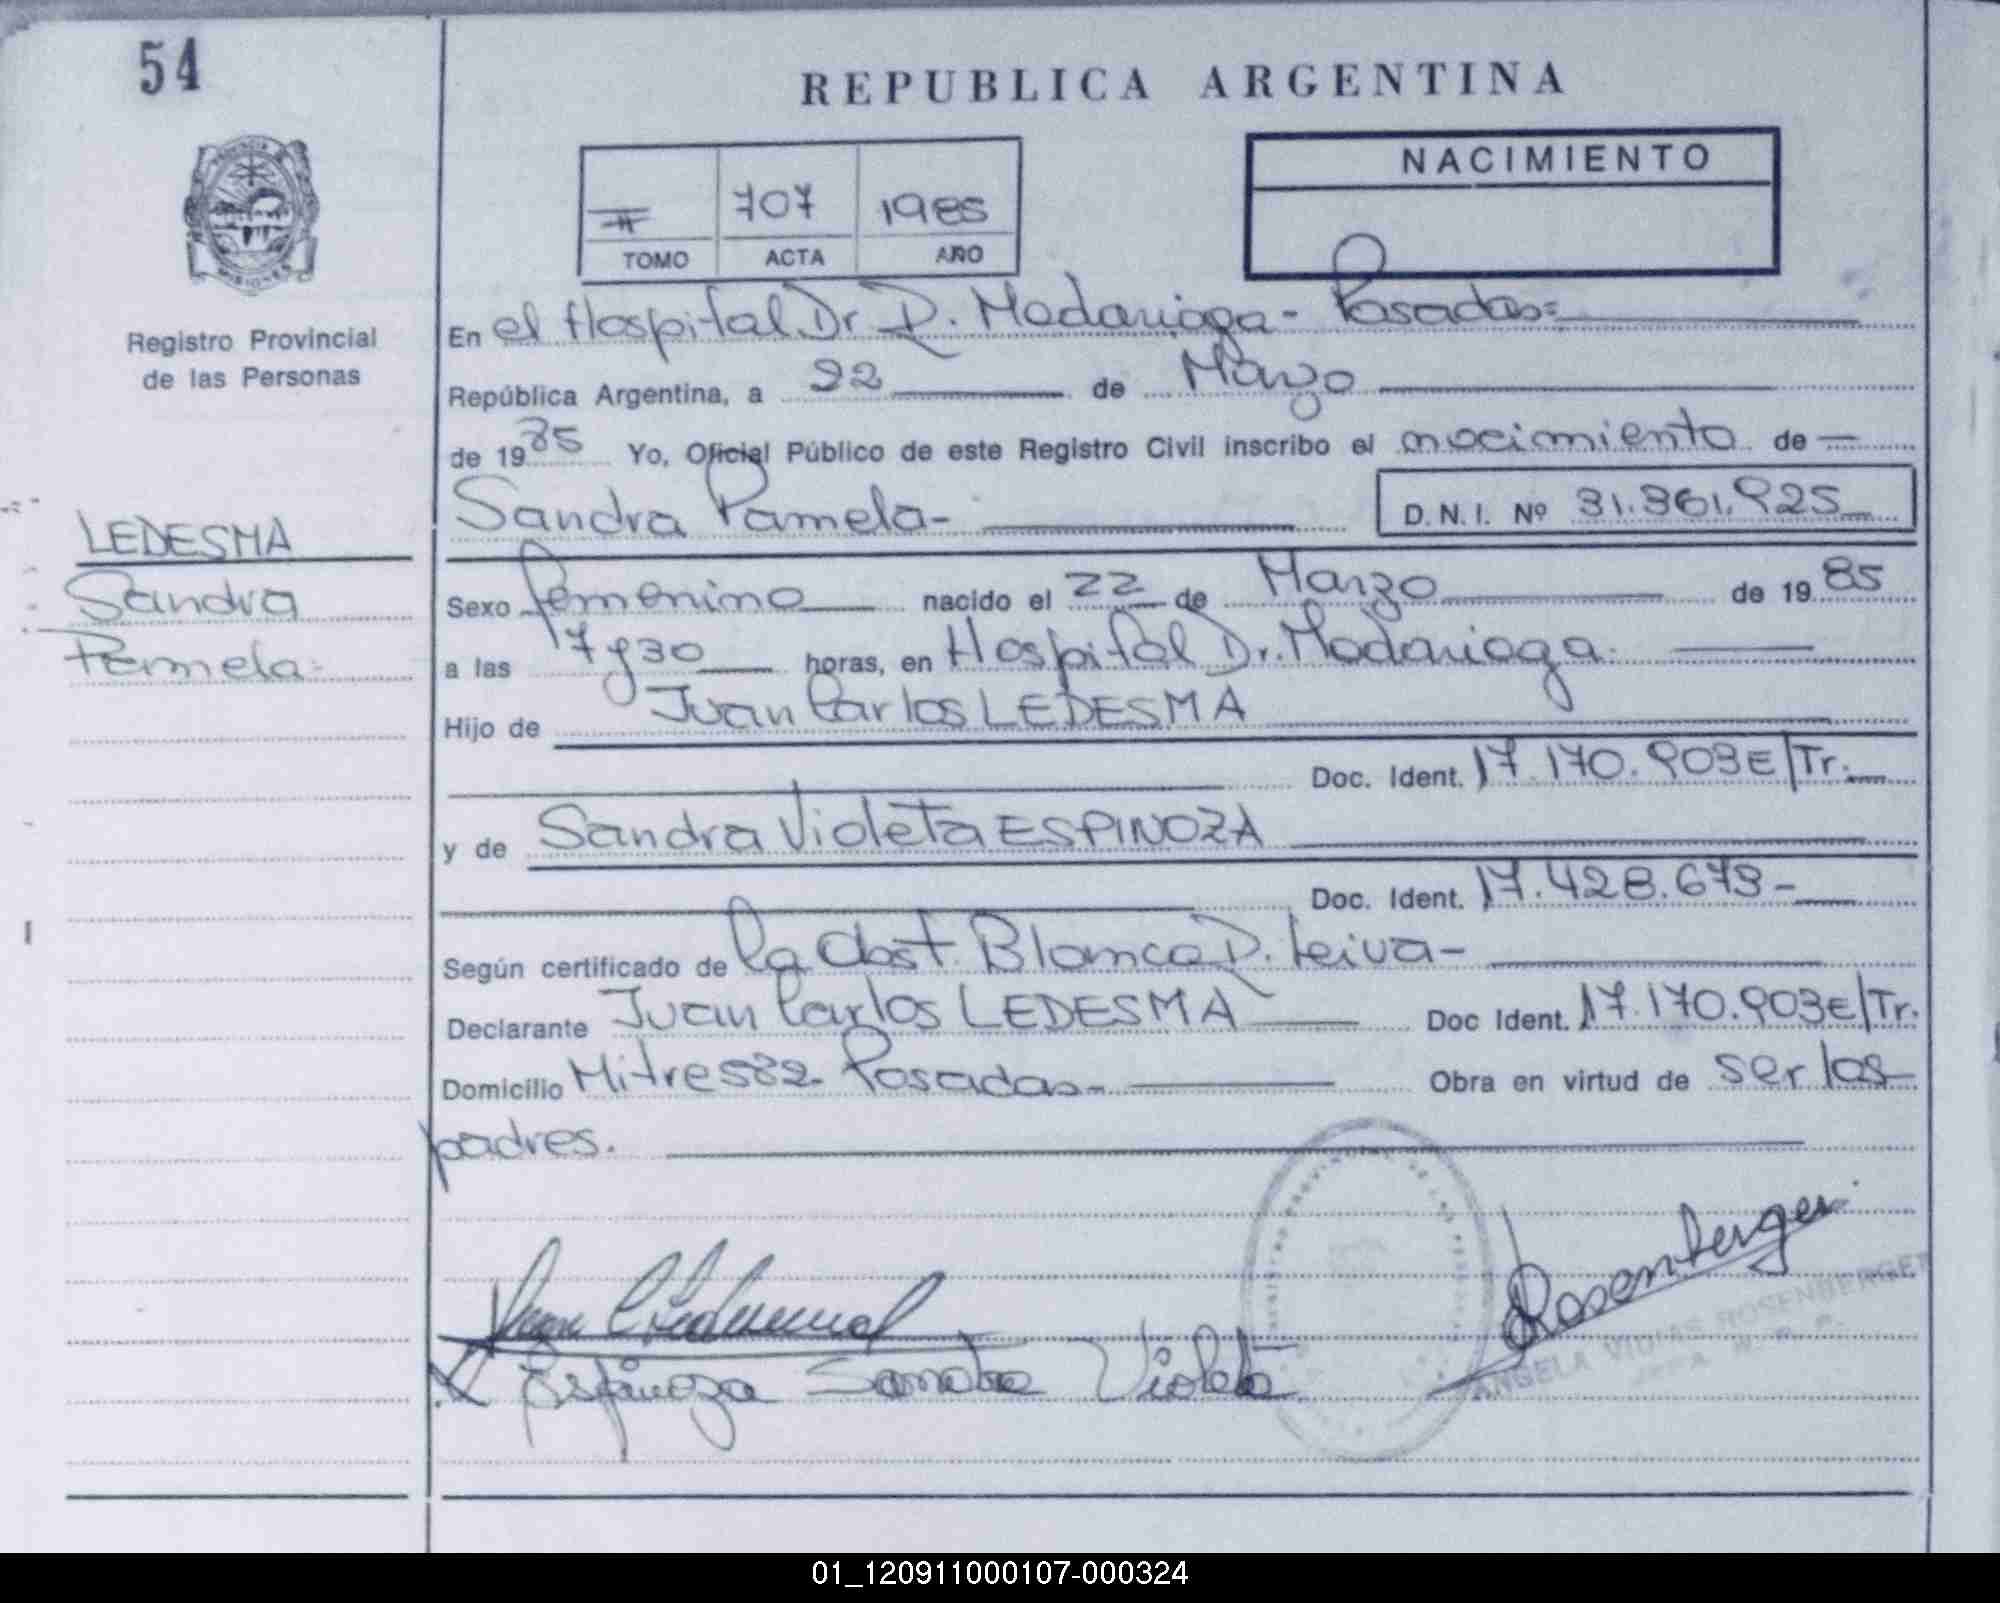 54
REPUBLICA ARGENTINA
NACIMIENTO
II 707 1985
TOMO ACTA AÑO
PROVINCIA DE MISIONES
Registro Provincial
de las Personas
En el Hospital Dr. R. Madariaga - Posadas=
República Argentina, a 22 de Marzo
de 1985 Yo, Oficial Público de este Registro Civil inscribo el nacimiento de
Sandra Pamela- D.N.I. Nº 31.361.925
LEDESMA
Sandra
Pamela-
Sexo femenino nacido el 22 de Marzo de 1985
a las 17y30 horas, en Hospital Dr. Madariaga.
Hijo de Juan Carlos LEDESMA
Doc. Ident. 17.170.903E/Tr.
y de Sandra Violeta ESPINOZA
Doc. Ident. 17.428.673-
Según certificado de la Obst. Blanca D. Leiva-
Declarante Juan Carlos LEDESMA Doc Ident. 17.170.903E/Tr.
Domicilio Mitre 582- Posadas- Obra en virtud de ser los
padres.
Rosenberger
ANGELA ROSENBERGER
Espinoza Sandra Violeta
01_120911000107-000324